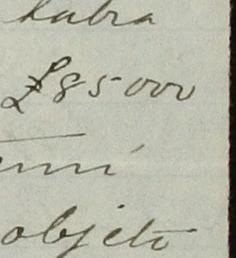 habra
£85000
objeto